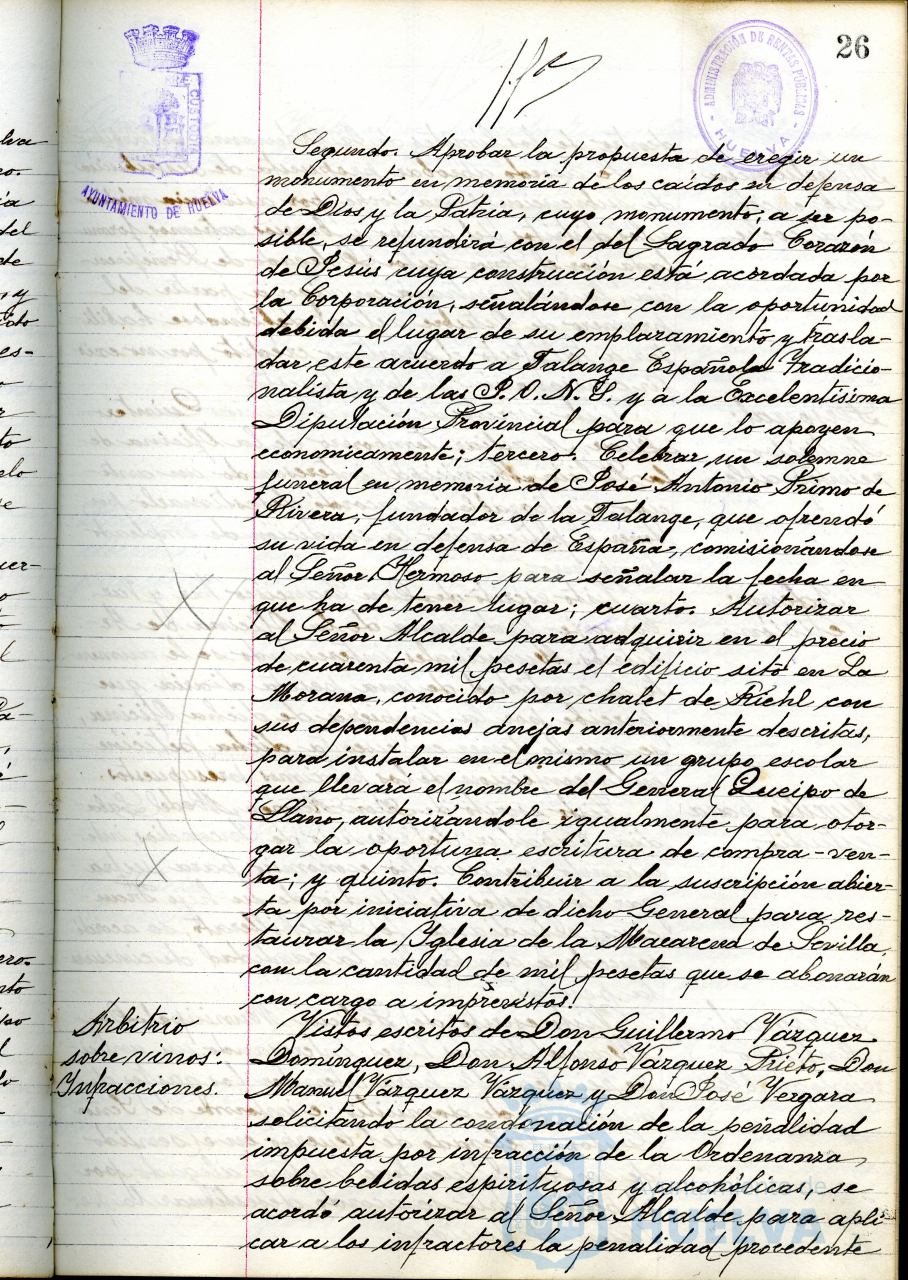 26
CUSTODIA
AYUNTAMIENTO DE HUELVA
ADMINISTRACIÓN DE RENTAS PÚBLICAS
- HUELVA -
Segundo. Aprobar la propuesta de eregir un
monumento en memoria de los caídos en defensa
de Dios y la Patria, cuyo monumento, a ser po-
sible, se refundirá con el del Sagrado Corazón
de Jesús cuya construcción está acordada por
la Corporación, señalándose con la oportunidad
debida el lugar de su emplazamiento y trasla-
dar este acuerdo a Falange Española Tradicio-
nalista y de las J. O. N. S. y a la Excelentísima
Diputación Provincial para que lo apoyen
economicamente; tercero. Celebrar un solemne
funeral en memoria de José Antonio Primo de
Rivera, fundador de la Falange, que ofrendó
su vida en defensa de España, comisionándose
al Señor Hermoso para señalar la fecha en
que ha de tener lugar; cuarto. Autorizar
al Señor Alcalde para adquirir en el precio
de cuarenta mil pesetas el edificio sito en La
Morana, conocido por chalet de Kiehl con
sus dependencias anejas anteriormente descritas,
para instalar en el mismo un grupo escolar
que llevará el nombre del General Queipo de
Llano, autorizándole igualmente para otor-
gar la oportuna escritura de compra-ven-
ta; y quinto. Contribuir a la suscripción abier-
ta por iniciativa de dicho General para res-
taurar la Iglesia de la Macarena de Sevilla,
con la cantidad de mil pesetas que se abonarán
con cargo a imprevistos.
Arbitrio
sobre vinos:
Infracciones.
Vistos escritos de Don Guillermo Vázquez
Domínguez, Don Alfonso Vázquez Prieto, Don
Manuel Vázquez Vázquez y Don José Vergara
solicitando la condonación de la peñalidad
impuesta por infracción de la Ordenanza
sobre bebidas espirituosas y alcohólicas, se
acordó autorizar al Señor Alcalde para apli
car a los infractores la penalidad procedente